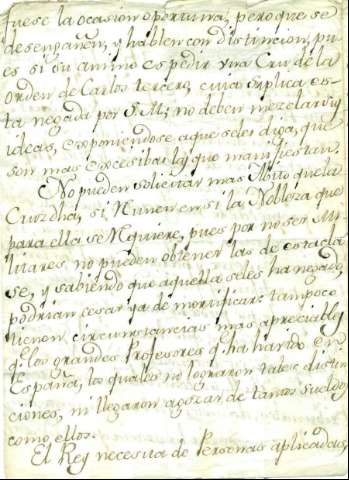 fuese la ocasion oportuna; pero que se
desengañen, y hablen con distincion, pu-
es si su animo es pedir una Cruz de la
Orden de Carlos tercero, cuia suplica es-
ta negada por S.M; no deben mezclar
ideas, exponiendose a que seles diga, que
son mas excesibas las que manifiestan.
No pueden solicitar mas Abito que la
Cruz dha, si Nunen en si la Nobleza que
para ella se Nquiere, pues por no ser Mi-
litares no pueden obtener las de esta cla
se, y sabiendo que aquella seles ha negado
podrian cesar ya de mortificar: tampoco
tienen circunstancias mas apreciables
q. los grandes Profesores q. ha havido en
España, los quales no lograron tales distin
ciones, ni llegaron a gozar de tantos sueldos
como ellos.
El Rey necesita de Personas aplicadas,